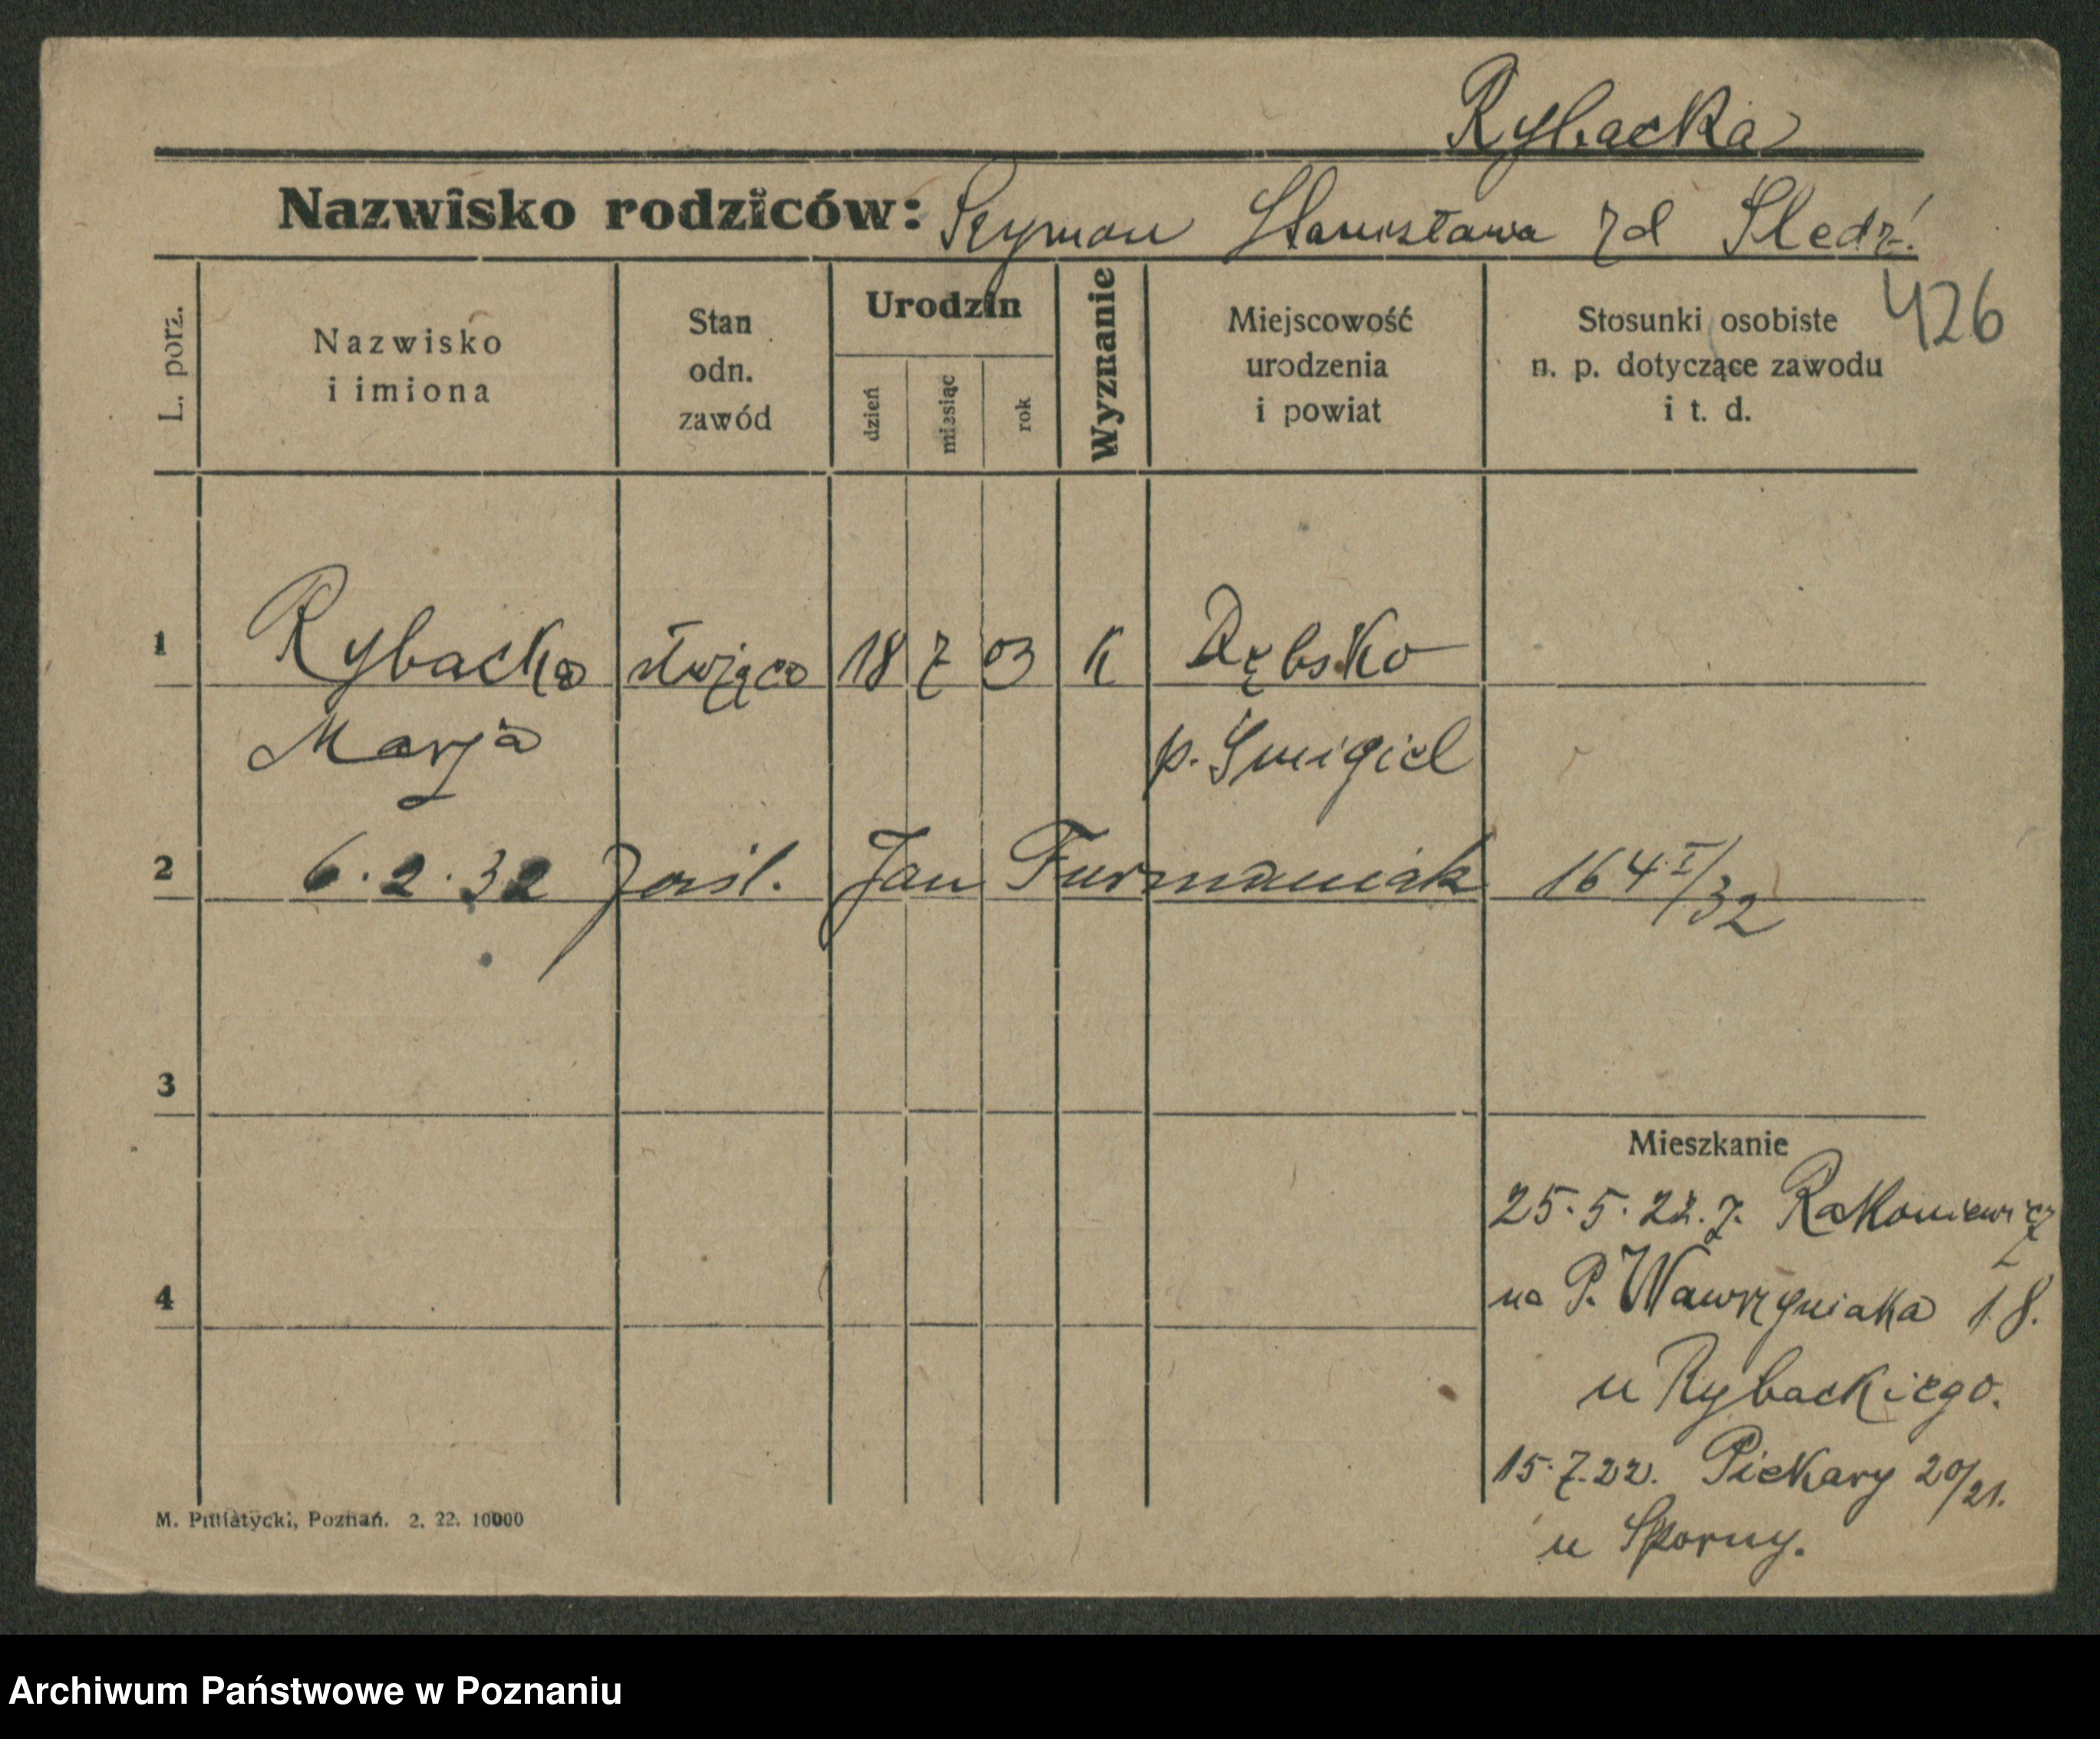 Rybacka
Nazwisko rodziców: Szymon Stanisława zd Śledź.
426
L. porz.
Nazwisko
i imiona
Stan
odn.
zawód
Urodzin
dzień
miesiąc
rok
Wyznanie
Miejscowość
urodzenia
i powiat
Stosunki osobiste
n. p. dotyczące zawodu
i t. d.
1 Rybacka służąca 18 7 03 K Dębsko
Marja p. Śmigiel
2 6.2.32 zaśl. Jan Furmaniak 164 I/32
3
Mieszkanie
25.5.22. z. Rakoniewicz
4
na P. Wawrzyniaka 18.
u Rybackiego.
15.7.22. Piekary 20/21.
u Sporny.
M. Putiatycki, Poznań. 2. 22. 10000
Archiwum Państwowe w Poznaniu